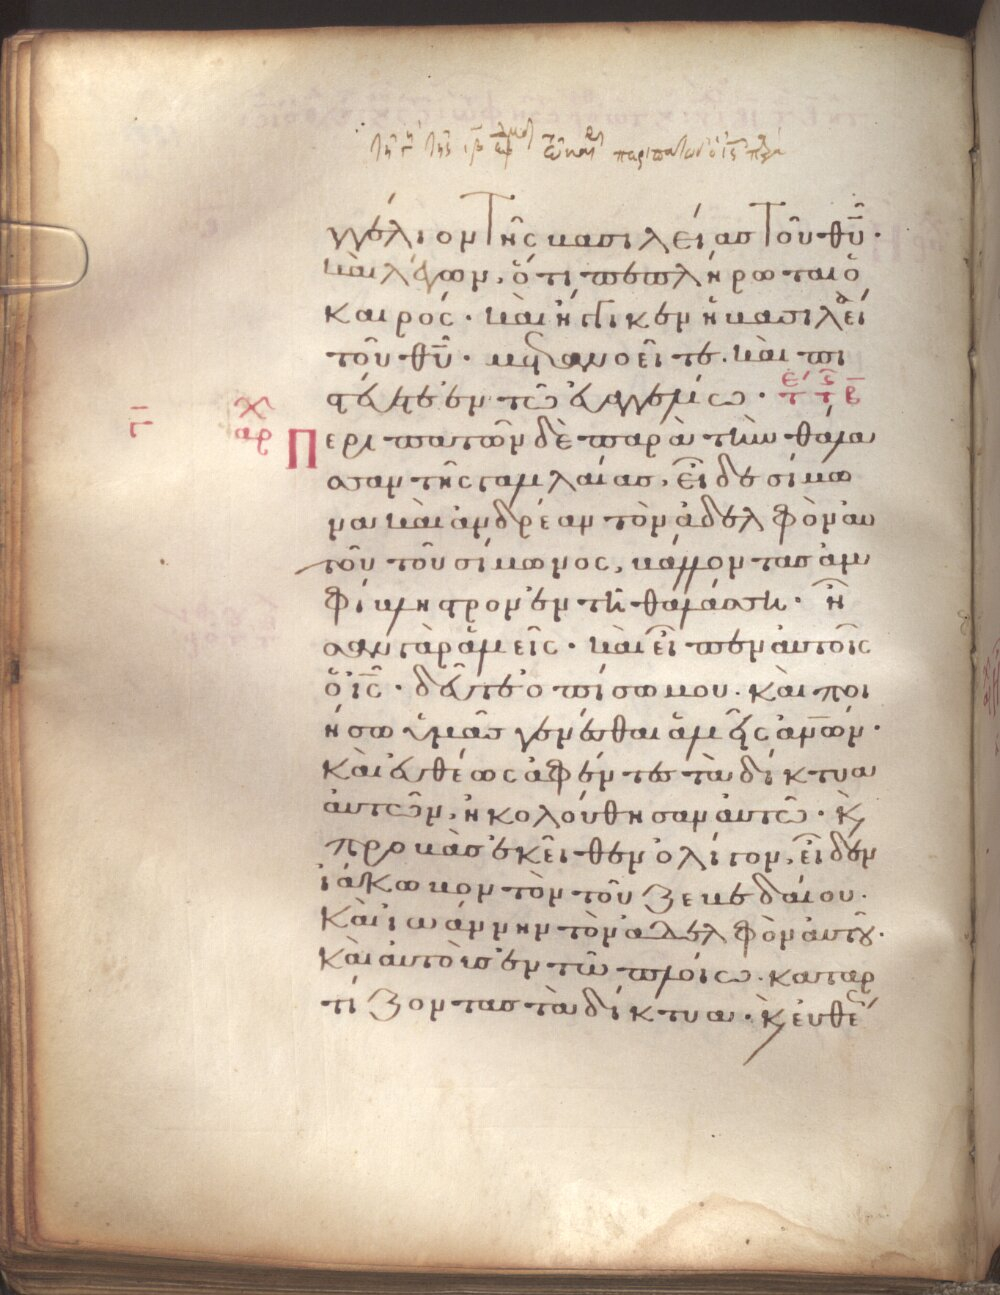 γγέλιον τῆς βασιλείας τοῦ θῦ·
καὶ λέγων, ὅτι πεπλήρωται ὁ
καιρός· καὶ ἤγγικεν ἡ βασιλεί
τοῦ θῦ· μετανοεῖτε. καὶ πι
στεύετε ἐν τῶ εὐαγγελίω·
Περιπατῶν δὲ παρὰ τὴν θάλα
σσαν τῆς γαλιλαίας, εἶδε σίμω
να καὶ ἀνδρέαν τὸν ἀδελφὸν αυ
τοῦ τοῦ σίμωνος, βάλλοντας ἀμ
φίβληστρον ἐν τῆ θαλάσση· ἦ
σαν γὰρ ἁλιεῖς· καὶ εἶπεν αὐτοῖς
ὁ ἰς̅· δεῦτε ὀπίσω μου. καὶ ποι
ήσω ὑμᾶς γενέσθαι ἁλιεῖς ἀν̅ων·
καὶ εὐθέως ἀφέντες τὰ δίκτυα
ἀυτῶν, ἠκολούθησαν ἀυτῶ· κ̀
προβὰς ἐκεῖθεν ὀλίγον, εἶδεν
ἰάκωβον τὸν τοῦ ζεβεδαίου·
καὶ ἰωάννην τὸν ἀδελφὸν ἀυτοῦ·
καὶ ἀυτοὺς ἐν τῶ πλοίω. καταρ
τίζοντας τὰ δίκτυα· κ̀ ἐυθέ